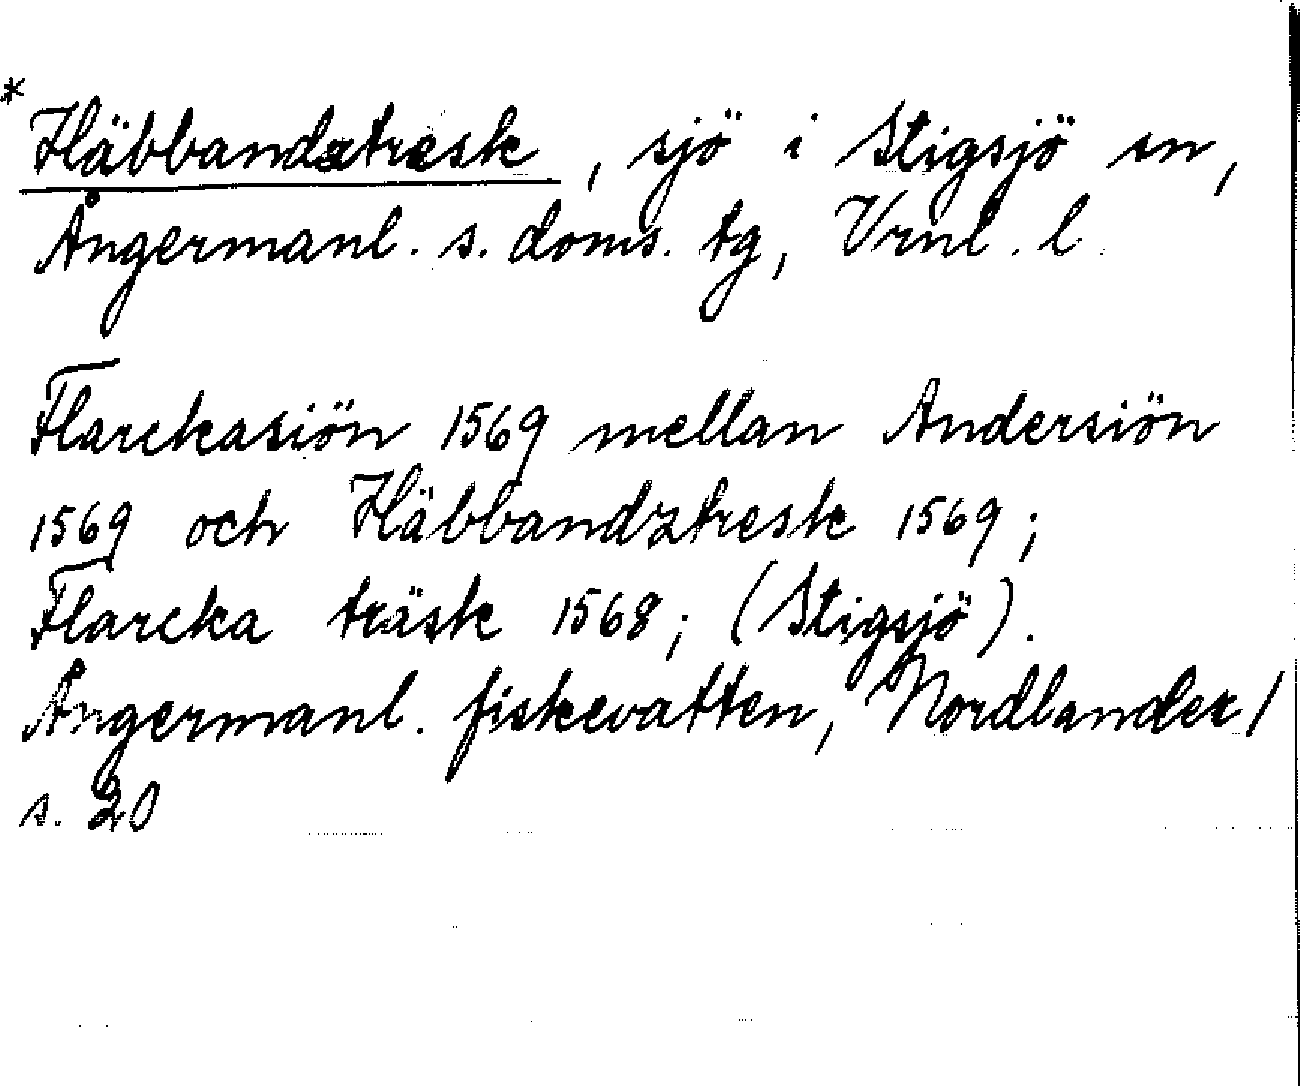 * Häbbandztresk, sjö i Stigsjö sn,
Ångermanl. s. doms. tg, Vrnl. l.
Flarckasiön 1569 mellan Andersiön
1569 och Häbbandztresk 1569;
Flarcka träsk 1568; (Stigsjö).
Ångermanl. fiskevatten, Nordlander/
s. 20